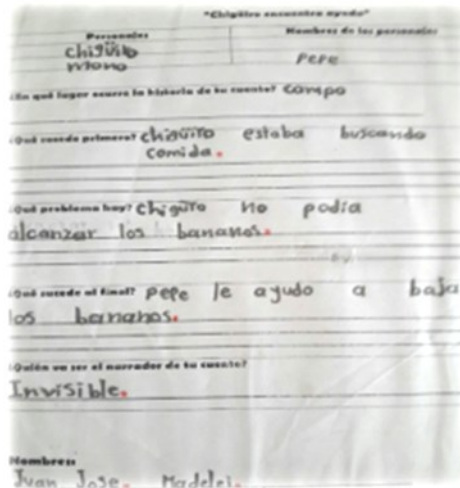 "Chigüiro encuentra ayuda"
Personajes Nombres de los personajes
chigüiro
mono Pepe
¿En qué lugar ocurre la historia de tu cuento? campo
¿Qué sucede primero? chigüiro estaba buscando
comida.
¿Qué problema hay? chigüro no podía
alcanzar los bananos.
¿Qué sucede al final? pepe le ayudo a baja
los bananos.
¿Quién va ser el narrador de tu cuento?
Invisible.
Nombres:
Juan Jose. Madelei.